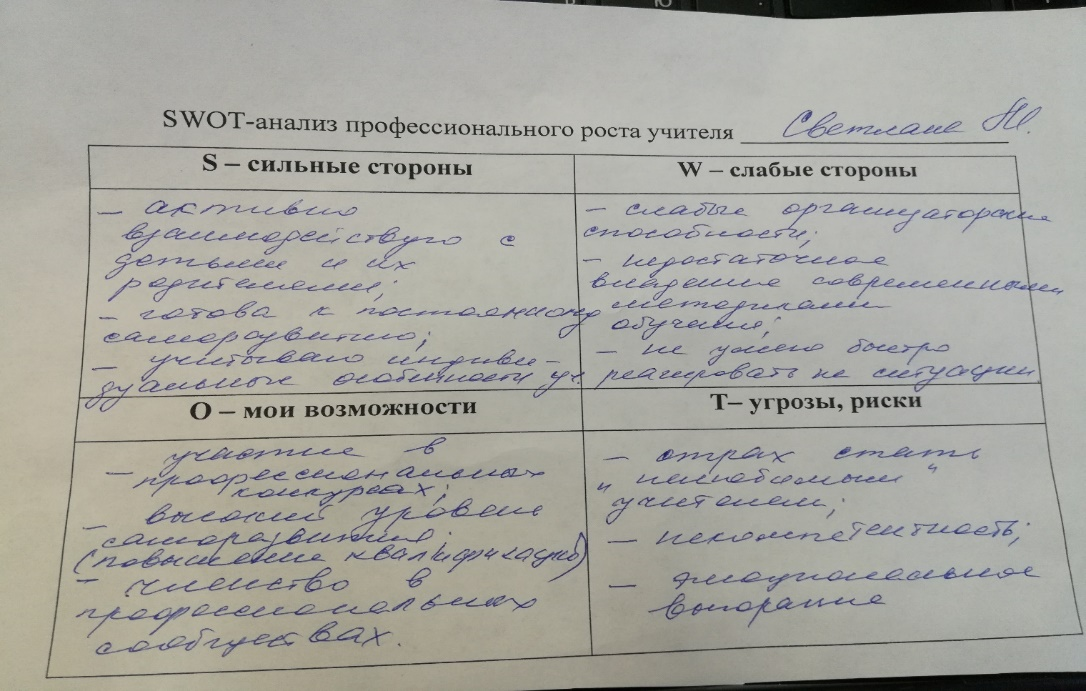 SWOT-анализ профессионального роста учителя Светлана Ю.
S – сильные стороны
– активно
взаимодействую с
детьми и их
родителями;
– готова к постоянному
саморазвитию;
– учитываю индиви-
дуальные особенности уч.
W – слабые стороны
– слабые организаторские
способности;
– недостаточное
владение современными
методиками
обучения;
– не умею быстро
реагировать на ситуации.
O – мои возможности
участие в
– профессиональных
конкурсах;
– высокий уровень
саморазвития;
(повышение квалификации)
– членство в
профессиональных
сообществах.
T– угрозы, риски
– страх стать
"нелюбимым"
учителем;
– некомпетентность;
– эмоциональное
выгорание